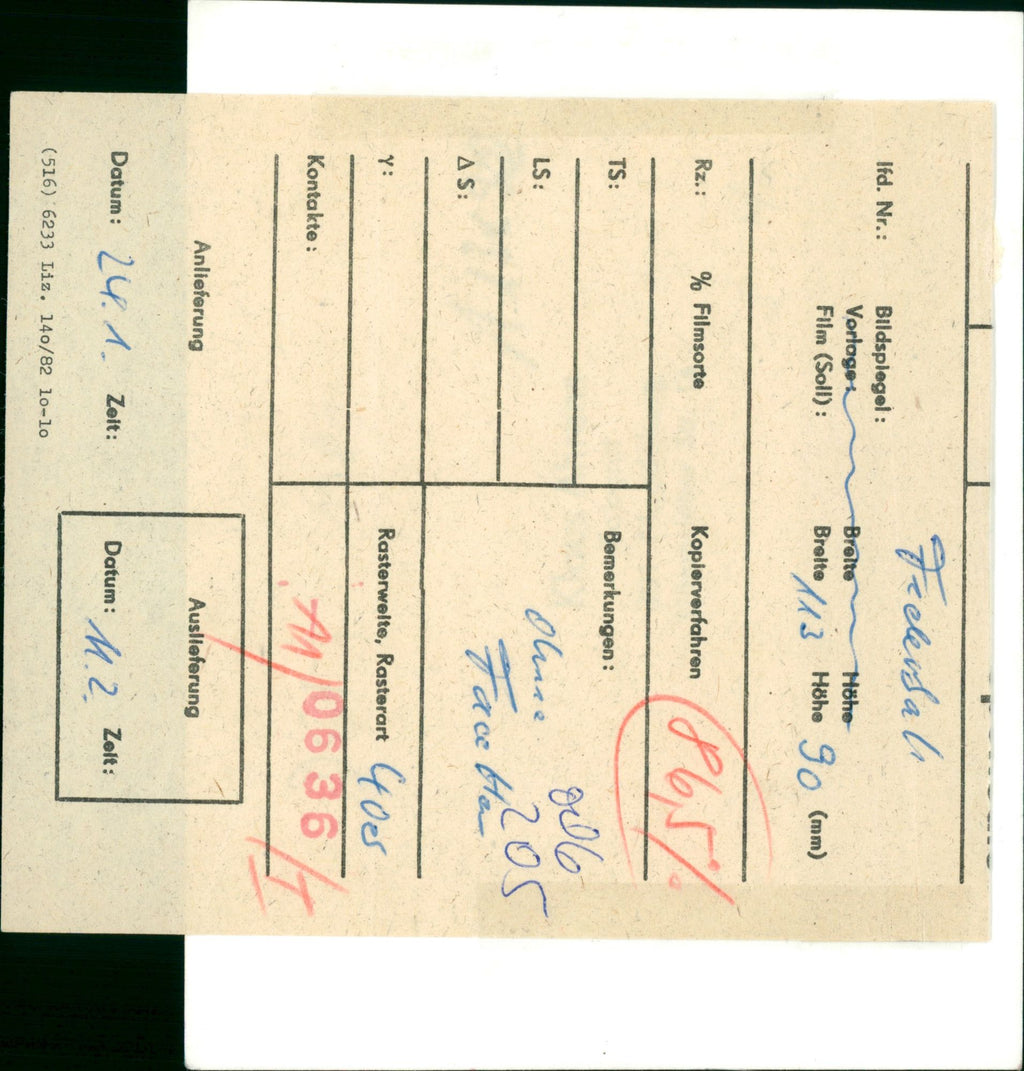 lfd. Nr.:
Bildspiegel:
Vorlage: Breite Höhe
Film (Soll): Breite 113 Höhe 90 (mm)
Rz.: % Filmsorte Kopierverfahren
86,5%
TS: Bemerkungen:
LS: ohne
Facetten
205
Δ S:
γ: Rasterweite, Rasterart 40er
Kontakte: 11/0636/I
Anlieferung Auslieferung
Datum: 24.1. Zeit: Datum: 11.2. Zeit:
(516) 6233 Liz. 14o/82 1o-1o